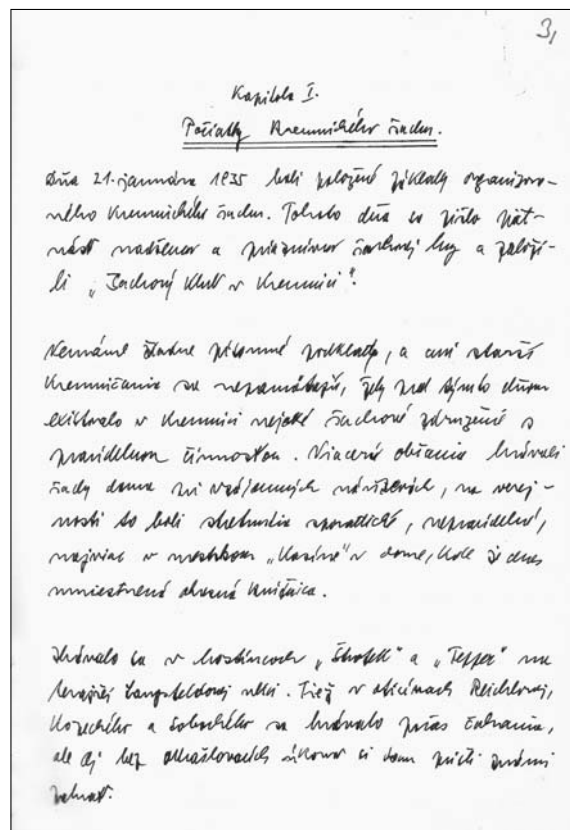 3,
Kapitola I.
Počiatky Kremnického šachu.
Dňa 21. januára 1935 boli položené základy organizova-
ného Kremnického šachu. Tohoto dňa sa zišlo pät-
násť nadšencov a priaznivcov šachovej hry a založi-
li „Šachový klub v Kremnici".
Nemáme žiadne písomné podklady, a ani starší
Kremničania sa nepamätajú, žeby pred týmto dňom
existovalo v Kremnici nejaké šachové združenie s
pravidelnou činnosťou. Viacerí občania hrávali
šachy doma pri vzájomných návštevách, na verej-
nosti to boli stretnutia sporadické, nepravidelné,
najviac v meštskom „Kasíne" v dome, kde je dnes
umiestnená okresná knižnica.
Hrávalo sa v hostincoch „Škotek" a „Tepper" na
terajšej Langsfeldovej ulici. Tiež v oficínach Reichlovej,
a sa hrávalo počas
ale aj bez si tam prišli známi
zahrať.